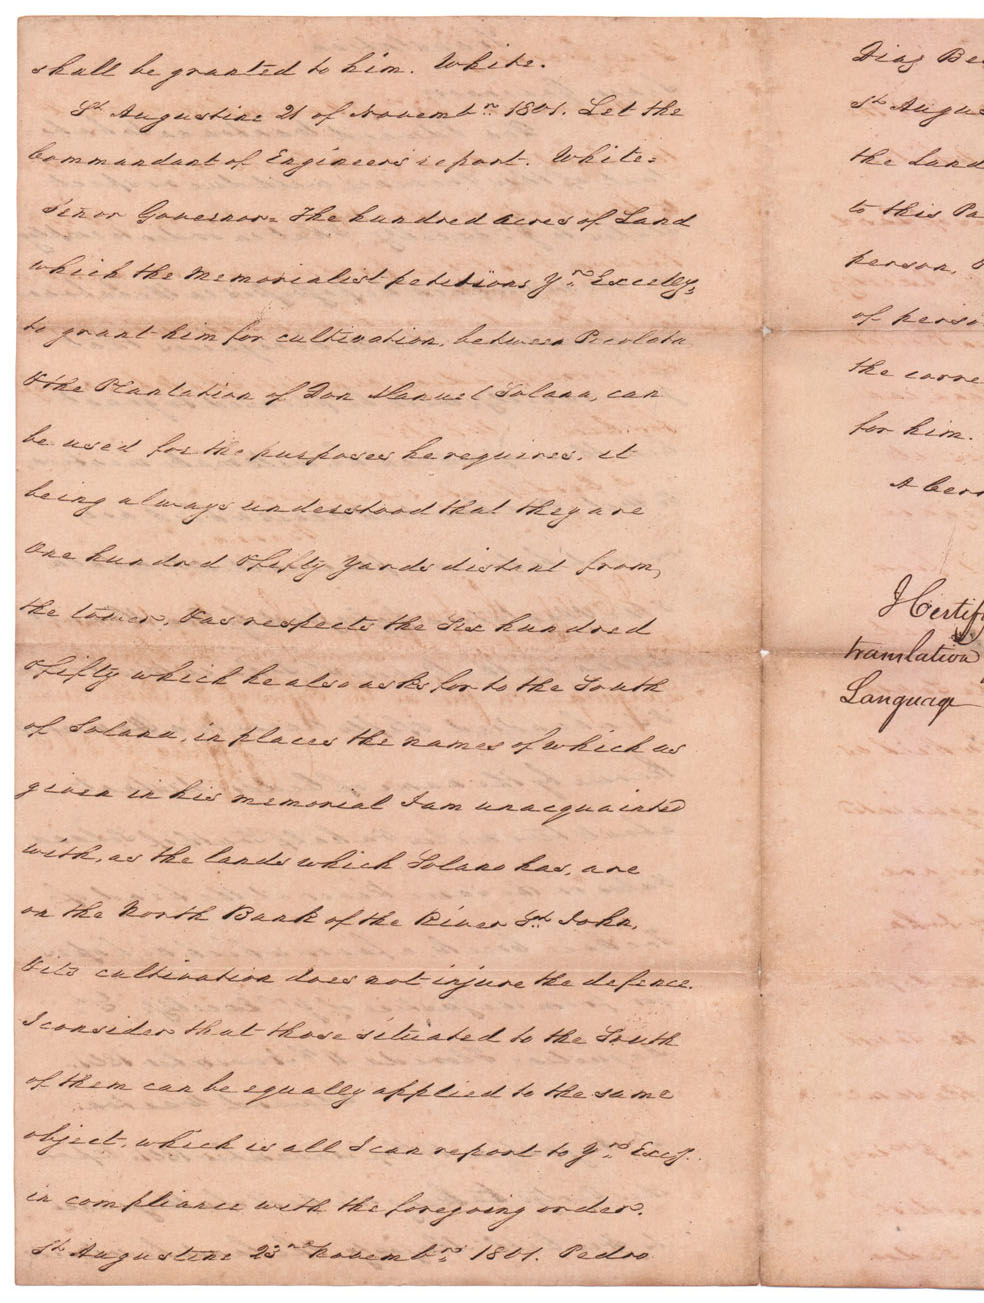 shall be granted to him. White.
St Augustine 21 of Novembrn 1801. Let the
Commandant of Engineers report. White=
Senor Governor= The hundred acres of Land
which the Memorialist petitions Yr. Excelly,
to grant him for cultivation, between Picolata
& the Plantation of Don Manuel Solana, can
be used for the purposes he requires, it
being always understood that they are
One hundred & fifty Yards distent from,
the tower, & as respects the Six hundred
& fifty which he also asks for to the South
of Solana, in places the names of which as
given in his memorial I am unacquainted
with, as the lands which Solano has, are
on the North Bank of the River St. John,
& its cultivation does not injure the defence.
I consider that those situated to the South
of them can be equally applied to the same
object, which is all I can report to Yr. Excy.
in compliance with the foregoing order.
St Augustine 23rd Novembr. 1801. Pedro
Diaz Be
St Augus
the Land
to this Pa
person,
of perso
the corre
for him.
A Cer
I Certif
translation
Language